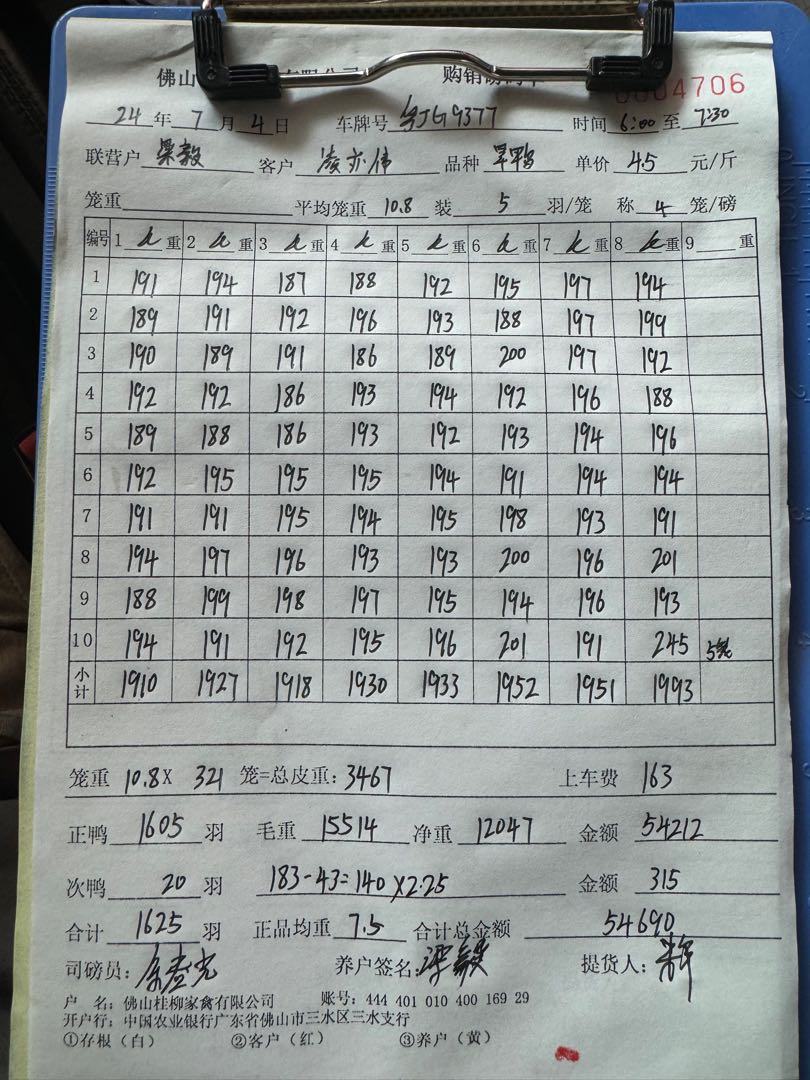 佛山
0004706
24 年 7 月 4 日 车牌号 粤JG9377 时间 6:00 至 7:30
联营户 梁毅 客户 凌亦伟 品种 旱鸭 单价 4.5 元/斤
笼重 平均笼重 10.8 装 5 羽/笼 称 4 笼/磅
编号 1 毛 重 2 毛 重 3 毛 重 4 毛 重 5 毛 重 6 毛 重 7 毛 重 8 毛 重 9 重
1 191 194 187 188 192 195 197 194
2 189 191 192 196 193 188 197 199
3 190 189 191 186 189 200 197 192
4 192 192 186 193 194 192 196 188
5 189 188 186 193 192 193 194 196
6 192 195 195 195 194 191 194 194
7 191 191 195 194 195 198 193 191
8 194 197 196 193 193 200 196 201
9 188 199 198 197 195 194 196 193
10 194 191 192 195 196 201 191 245 5笼
小计 1910 1927 1918 1930 1933 1952 1951 1993
笼重 10.8X 321 笼=总皮重: 3467 上车费 163
正鸭 1605 羽 毛重 15514 净重 12047 金额 54212
次鸭 20 羽 183-43=140 X2.25 金额 315
合计 1625 羽 正品均重 7.5 合计总金额 54690
司磅员: 养户签名: 梁毅 提货人:
户 名: 佛山桂柳家禽有限公司 账号: 444 401 010 400 169 29
开户行: 中国农业银行广东省佛山市三水区三水支行
①存根(白) ②客户(红) ③养户(黄)